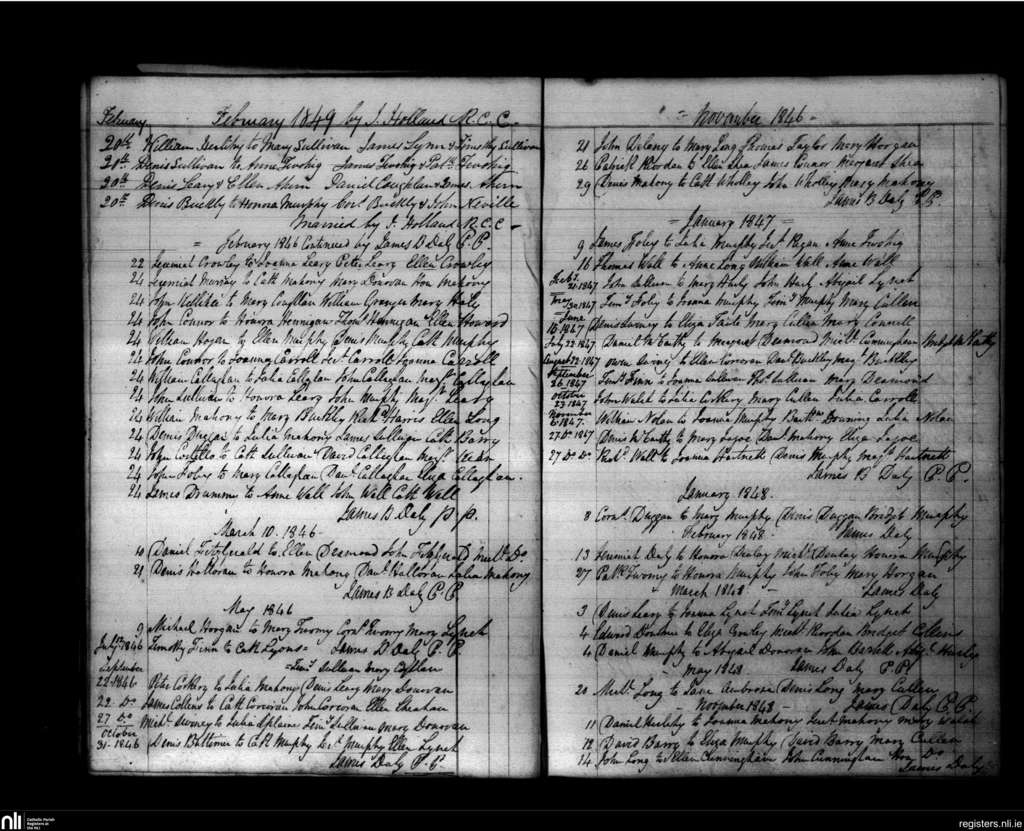 February February 1849 by J. Holland R.C.C.
20th William Herlihy to Mary Sullivan James Lynn & Timothy Sullivan
20th Denis Sullivan to Anne Twohig James Twohig & Patk Twohig
20th Denis Leary & Ellen Ahern Daniel Coughlan & James Ahern
20th Denis Buckly to Honora Murphy Buckly & John Neville
Married by J. Holland R.C.C.
= February 1846 Continued by James D Daly P.P
22 Jeremiah Crowley to Joanna Leary Peter Leary Ellen Crowley
24 Jeremiah Murray to Cath Mahony Mary Donovan Hon Mahony
24 John to Mary Coughlan William Mary
24 John Connor to Honora Hennigan Thos Hennigan Ellen Howard
24 William Hogan to Ellen Murphy Denis Murphy Cath Murphy
24 John Connor to Joanna Carroll Jert Carroll Joanna Carroll
24 William Callaghan to Julia Callaghan John Callaghan Margt Callaghan
24 John Sullivan to Honora Leary John Murphy Margt Leary
24 William Mahony to Mary Buckley Richd Harris Ellen Long
24 Denis Duggan to Julia Mahony James Sullivan Cath Barry
24 John Costello to Cath Sullivan David Callaghan Margt
24 John Foley to Mary Callaghan Danl Callaghan Eliza Callaghan.
24 James Drummy to Anne Wall John Wall Cath Wall
James B Daly P.P.
March 10. 1846
10 Daniel Fitzgerald to Ellen Desmond John Fitzgerald Do
21 Denis Halloran to Honora Mahony Danl Halloran Julia Mahony
James B Daly P.P
May 1846
9 Michael Horgan to Mary Twomy Corns Twomy Mary Lynch
July 1846 Timothy Finn to Cath Lyons = James D Daly P.P
September = Timy Sullivan Mary
22-1846 Peter Corkery to Julia Mahony Denis Leary Mary Donovan
22 Do James Collins to Cath Corcoran John Corcoran Ellen Sheahan
27 Do Michl Sweney to Julia Splaine Timy Sullivan Mary Donovan
October
31-1846 Denis to Cath Murphy Jert Murphy Ellen Lynch
James Daly P.P
" = November 1846 =
21 John Delany to Mary Long Thomas Taylor Mary Horgan
26 Patrick Riordan to Ellen Shea James Connor Margaret Shea
29 Denis Mahony to Cath Wholley John Wholley Mary Mahony
James B Daly P.P.
= January 1847 =
9 James Foley to Julia Murphy Jert Regan Anne Twohig
16 Thomas Wall to Anne Long William Wall Anne Wall
21-1847 John Sullivan to Mary Hurly John Hurly Abigail Lynch
1847 Timy Foley to Joanna Murphy Timy Murphy Mary Cullen
June
16-1847 Denis to Eliza Mary Cullen Mary Connell
July 22-1847 Daniel McCarthy to Margaret Desmond Michl Cunningham McCarthy
August 22-1847 Owen to Ellen Corcoran Danl Buckley Margt Buckley
September
26-1847 Timy Finn to Joanna Sullivan Thos Sullivan Mary Desmond
October
23-1847 John Walsh to Julia Corkery Mary Cullen Julia Carroll
November
6-1847. William Nolan to Joanna Murphy Julia Nolan
27 Do 1847 Denis McCarthy to Mary Danl Mahony Eliza
27 Do Do Richd Wall to Joanna Hartnett Denis Murphy Margt Hartnett
James B Daly P.P.
January 1848.
8 Corns. Duggan to Mary Murphy Denis Duggan Bridget Murphy
February 1848 James Daly
13 Jeremiah Daly to Honora Dunlay Michl Dunlay Honora Murphy
27 Patk Twomy to Honora Murphy John Foley Mary Horgan
March 1848 = James Daly
3 Denis Leary to Joanna Lynch Timy Lynch Julia Lynch
4 Edward Donohue to Eliza Crowley Michl Riordan Bridget Collins
6 Daniel Murphy to Abigail Donovan John
May 1848 James Daly P.P
20 Michl Long to Jane Ambrose Denis Long Mary Cullen
= November 1848 = James Daly P.P
11 Daniel Herlihy to Joanna Mahony Jert Mahony Mary Walsh
12 David Barry to Eliza Murphy David Barry Mary Cullen
14 John Long to Ellen Cunningham John Cunningham Hon Do
James Daly
nli
Catholic Parish
Registers at
the NLI
registers.nli.ie